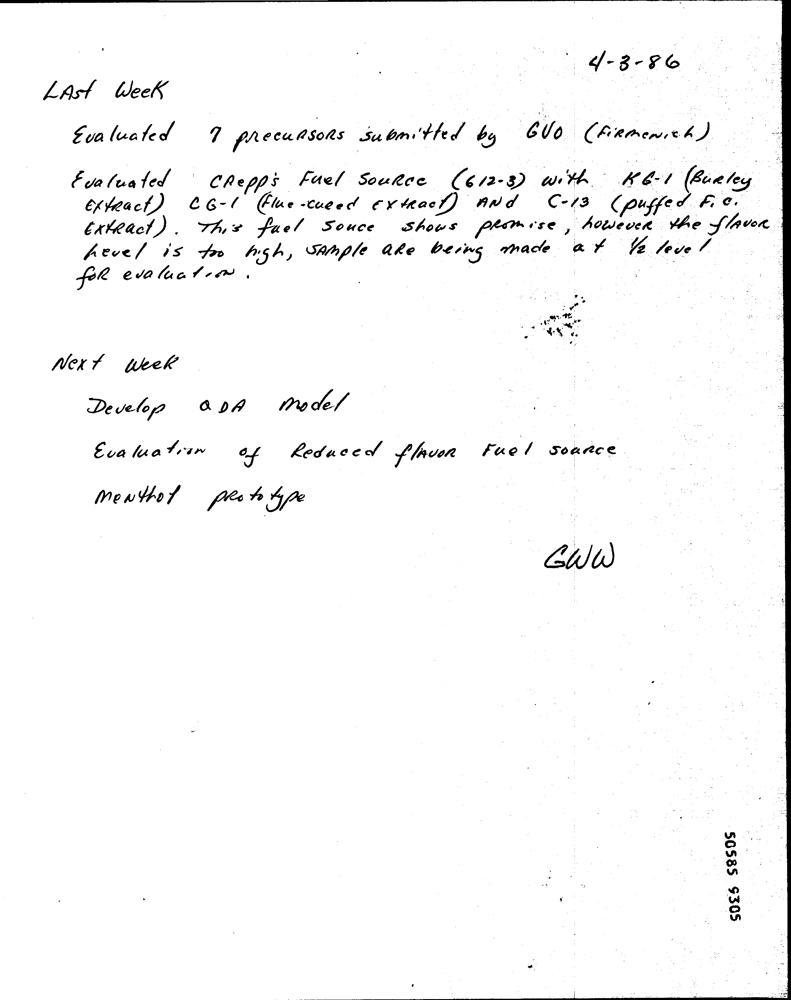 4-3-86
LAst Week
Evaluated 7 precursors submitted by GVO (Firmenich)
Evaluated CRepp's Fuel Source (612-3) with KG-1 (Burley
Extract) CG-1 (Flue-cured Extract) AND C-13 (puffed F.C.
Extract). This fuel souce shows promise, however the flavor
level is too high, sample are being made at 1/2 level
for evaluation.
Next Week
Develop QDA model
Evaluation of Reduced flavor Fuel source
Menthol prototype
GWW
50585 9305